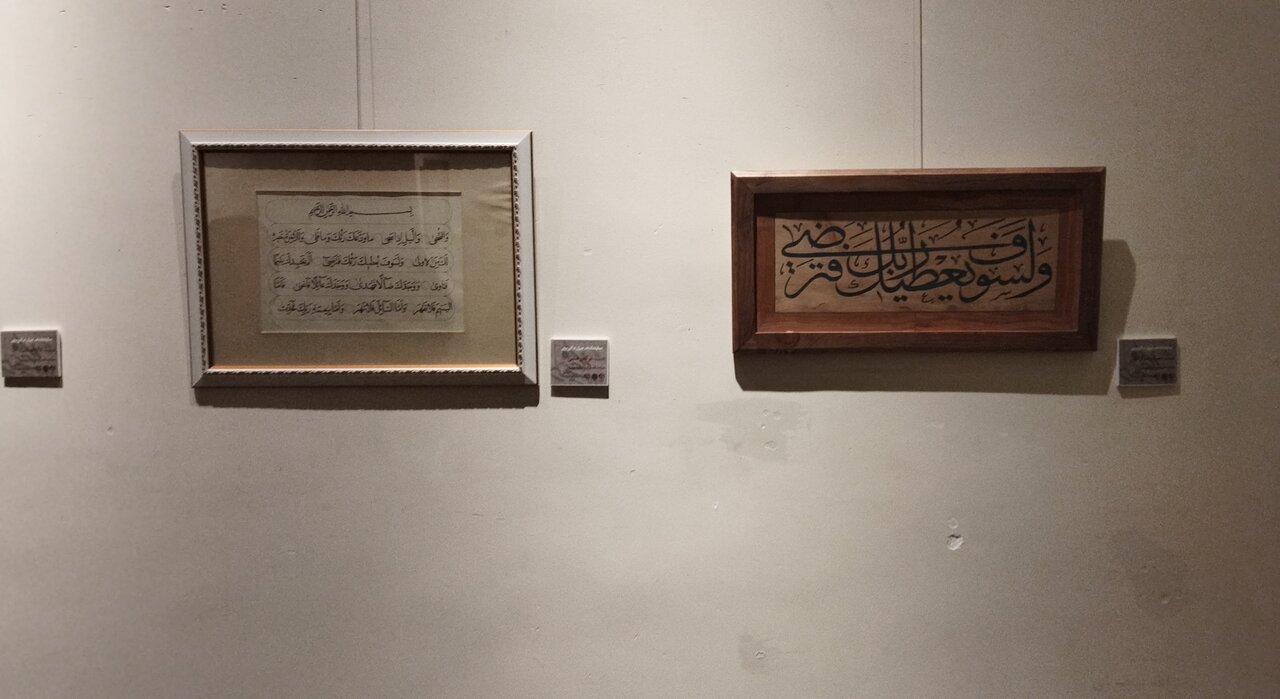 بسم الله الرحمن الرحيم
والضحى والليل إذا سجى ما ودعك ربك وما قلى وللآخرة خير
لك من الاولى ولسوف يعطيك ربك فترضى ألم يجدك يتيما
فآوى ووجدك ضالا فهدى ووجدك عائلا فاغنى فاما
اليتيم فلا تقهر وأما السائل فلا تنهر وأما بنعمة ربك فحدث
ولسوف يعطيك ربك فترضى